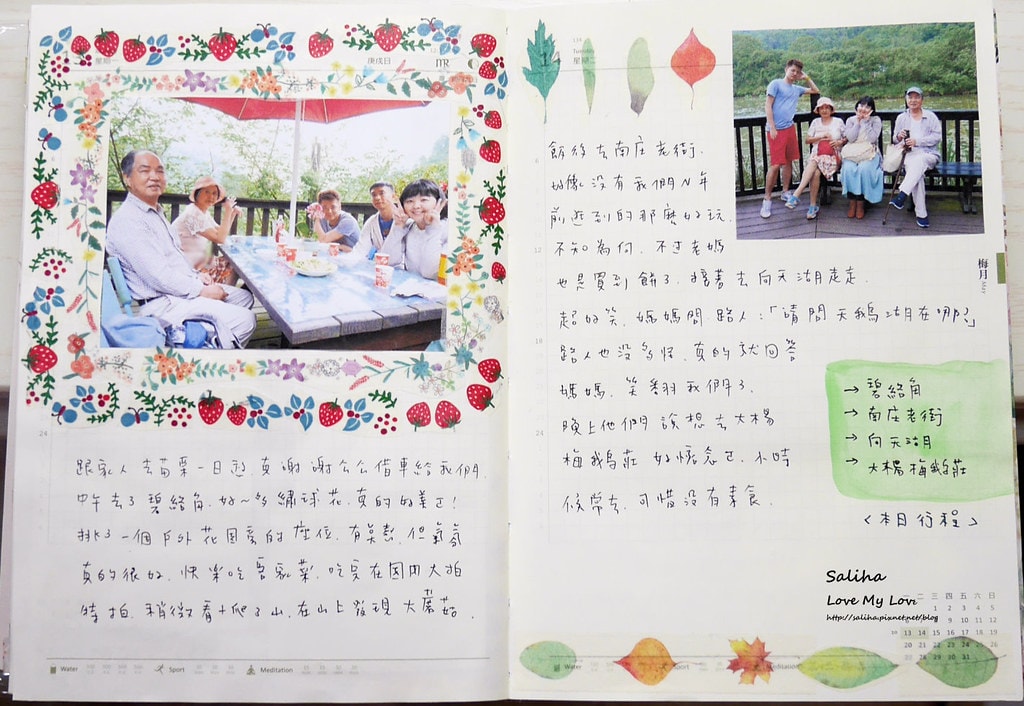 星期一
庚戌日
跟家人去苗栗一日遊,真謝謝公公借車給我們.
中午去了碧絡角.好~多繡球花.真的好美ㄛ!
挑了一個戶外花園旁的座位.有點熱.但氣氛
真的很好.快樂吃客家菜.吃完在園內大拍
特拍.稍微看+爬了山.在山上發現大蘑菇.
Water Sport Meditation
星期二
飯後去南庄老街.
好像沒有我們N年
前逛到的那麼好玩.
不知為何.不過老媽
也是買到餓了.接著去向天湖走走.
超好笑.媽媽問路人:「請問天鵝湖在哪?」
路人也沒多怪.真的就回答
媽媽.笑翻我們了.
晚上他們說想去大楊
梅鵝莊.好懷念ㄛ.小時
候常去.可惜沒有素食.
梅月
May
→ 碧絡角
→ 南庄老街
→ 向天湖
→ 大楊梅鵝莊
<本日行程>
Saliha
Love My Love
http://saliha.pixnet.net/blog
二 三 四 五 六 日
1 2 3 4 5
9 10 11 12
13 14 15 16 17 18 19